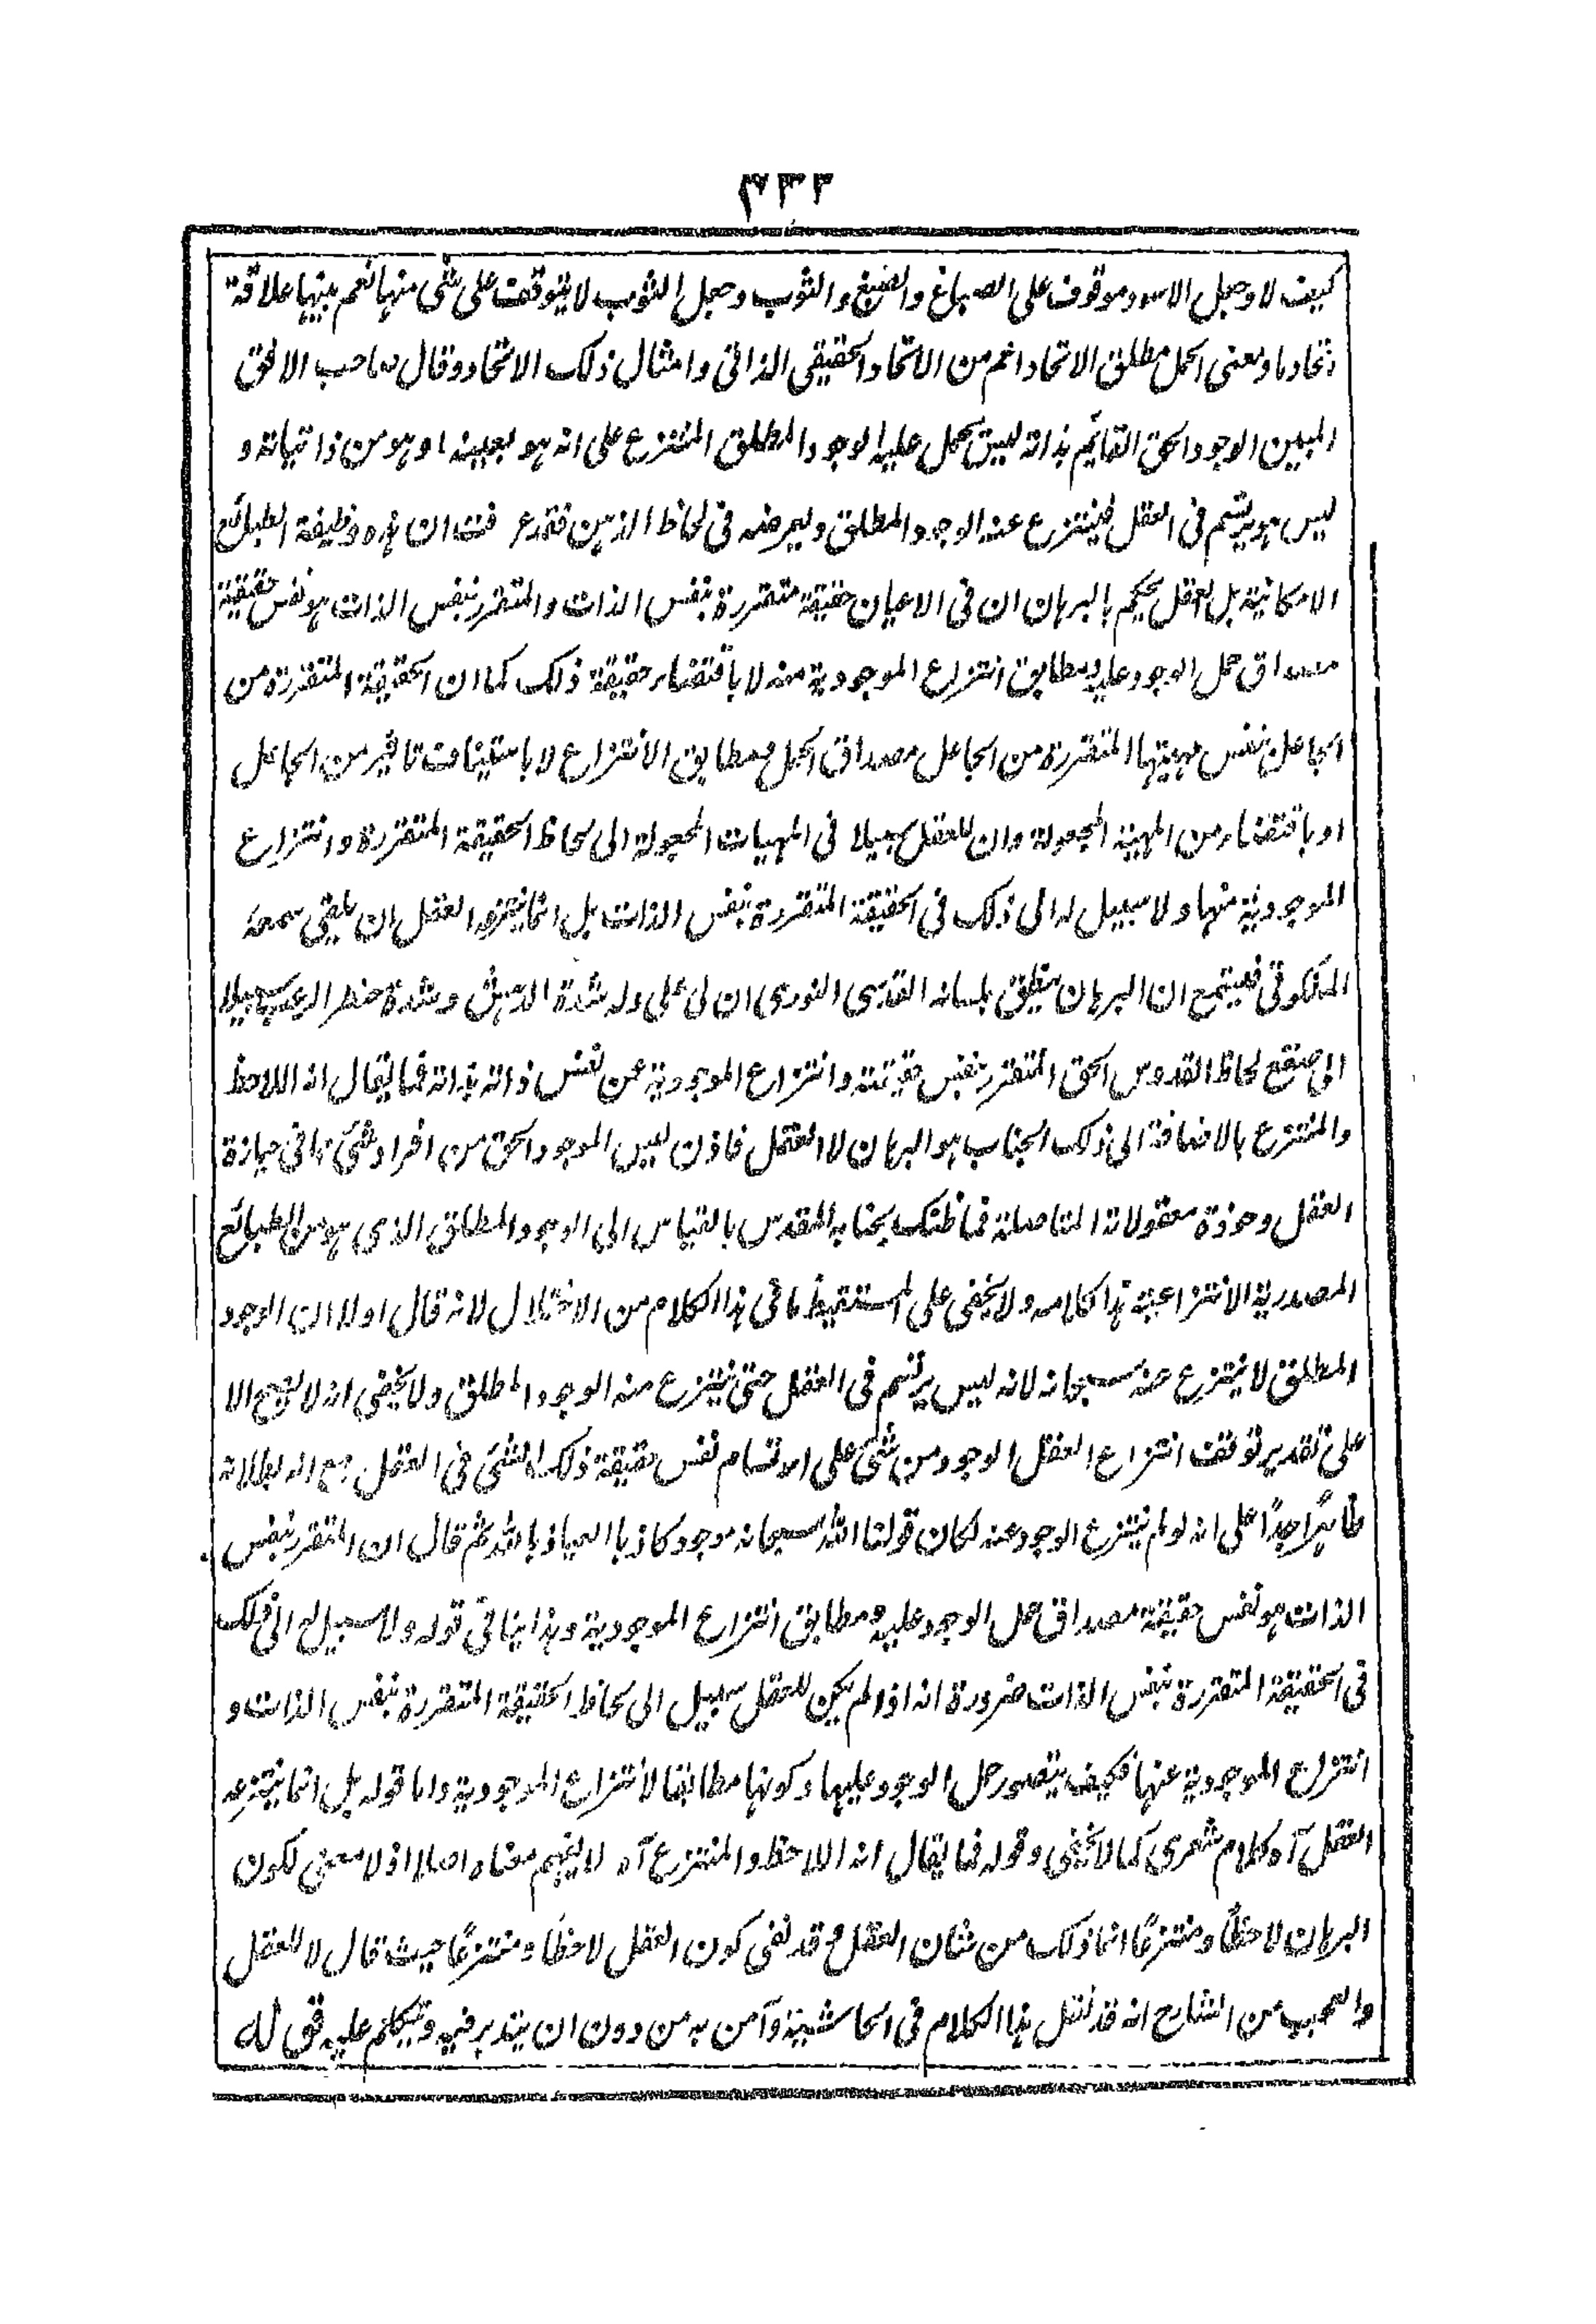 ٣٣٢
كيف لا وجعل الاسود موقوف على الصباغ والصبغ والثوب وجعل الثوب لا يتوقف على شئ منها نعم بينهما علاقة
اتحاد ما ومعنى الحمل مطلق الاتحاد اعم من الاتحاد الحقيقي الذاتي وامثال ذلك الاتحاد وقال صاحب الافق
المبين الوجود الحق القائم بذاته ليس يحمل عليه الوجود المطلق المنتزع على انه هو بعينه او هو من ذاتياته و
ليس هو يرتسم في العقل فينتزع عنه الوجود المطلق ويعرضه في لحاظ الذهن فقد عرفت ان هذه وظيفة الطبائع
الامكانية بل العقل يحكم بالبرهان ان في الاعيان حقيقة متقررة بنفس الذات والمتقرر بنفس الذات هو نفس حقيقية
مصداق حمل الوجود عليه ومطابق انتزاع الموجودية منه لا باقتضاء حقيقة ذلك كما ان الحقيقة المتقررة من
الجاعل بنفس مهيتها المتقررة من الجاعل مصداق الحمل ومطابق الانتزاع لا باستيناف تاثير من الجاعل
او باقتضاء من المهية المجعولة وان للعقل سبيلا في المهيات المجعولة الى لحاظ الحقيقة المتقررة وانتزاع
الموجودية منها ولا سبيل له الى ذلك في الحقيقة المتقررة بنفس الذات بل انما ينتزعه العقل ان يلقى سمعه
الملكوتي فيستمع ان البرهان ينطق بلسانه القدسي النوري ان لى على وله شدة وشدة سبيلا
الى صقع لحاظ القدوس الحق المتقرر بنفس حقيقته وانتزاع الموجودية عن نفس ذاته بذاته فما يقال انه اللاحظ
والمنتزع بالاضافة الى ذلك الجناب هو البرهان لا العقل فاذن ليس الموجود الحق من افراد شئ ما في حيازة
العقل وحوذة معقولاته المتاصلة فما ظنك بجنابه المقدس بالقياس الى الوجود المطلق الذى هو من الطبائع
المصدرية الانتزاعية هذا كلامه ولا يخفى على المستيقظ ما في هذا الكلام من الاختلال لانه قال اولا ان الوجود
المطلق لا ينتزع عنه سبحانه لانه ليس يرتسم في العقل حتى ينتزع منه الوجود المطلق ولا يخفى انه لا يصح الا
على تقدير توقف انتزاع العقل الوجود من شئ على ارتسام نفس حقيقة ذلك الشئ في العقل مع انه بطلانه
ظاهر جدًا على انه لو لم ينتزع الوجود عنه لكان قولنا الله سبحانه موجود كاذبا العياذ بالله ثم قال ان المتقرر بنفس
الذات هو نفس حقيقة مصداق حمل الوجود عليه ومطابق انتزاع الموجودية وهذا ينافي قوله ولا سبيل له الى ذلك
في الحقيقة المتقررة بنفس الذات ضرورة انه اذا لم يكن للعقل سبيل الى لحاظ الحقيقة المتقررة بنفس الذات و
انتزاع الموجودية عنها فكيف يتصور حمل الوجود عليها وكونها مطابقا لانتزاع الموجودية واما قوله بل انما ينتزعه
العقل آه كلام شعرى كما لا يخفى وقوله فما يقال انه اللاحظ والمنتزع آه لا يفهم معناه اصلا اذ لا معنى لكون
البرهان لاحظًا ومنتزعًا انما ذلك من شان العقل وقد نفى كون العقل لاحظًا ومنتزعًا حيث قال لا للعقل
والعجب من الشارح انه قد نقل هذا الكلام في الحاشية وآمن به من دون ان يتدبر فيه ويتكلم عليه قوله